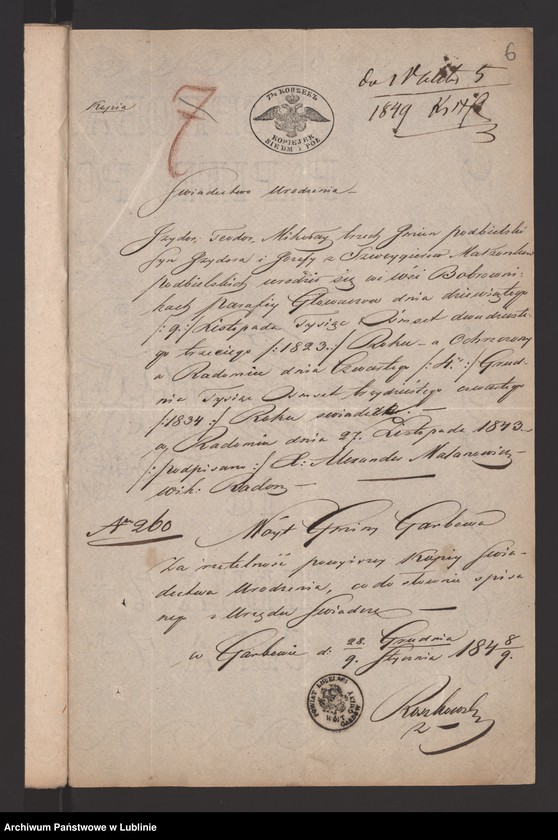 6
5
1849
Kopia
7
7½ КОПѢЕКЪ
KOPIEJEK SIEDM I PÓŁ
Swiadectwo Urodzenia
Izydor, Teodor, Mikołay trzech Imion Podbielski
syn Izydora i Józefy z Małżonków
Podbielskich urodził się we wsi Bobrowni-
kach parafii Głowaczow dnia dziewiątego
/:9:/ Listopada Tysiąc Ośmset dwudzieste-
go trzeciego /:1823:/ Roku a Ochrzczony
w Radomiu dnia Czwartego /:4:/ Grud-
nia Tysiąc Ośmset trzydziestego czwartego
/:1834:/ Roku świadczę.
w Radomiu dnia 27. Listopada 1843.
/:podpisano:/ X: Alexander Malanowicz
wik: Radom
No 260
Wóyt Gminy Garbowa
Za rzetelność powyższey Kopiey Swia-
dectwa Urodzenia, co do słownie spisa
ney z Urzędu Swiadczę
w Garbowie d: 28. Grudnia / 9. Stycznia 1848/9.
POWIAT LUBELSKI WÓJT GMINY GARBÓW